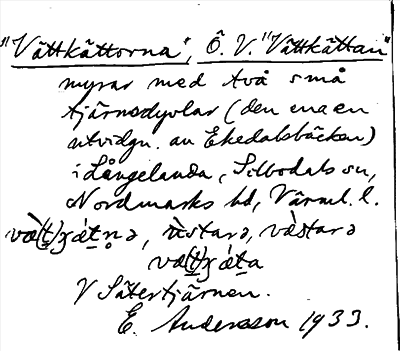 "Vättkättorna", Ö. V. "Vättkättan"
myrar med två små
tjärnsdyolar (den ena en
utvidgn. av Ekedalsbäcken)
i Långelanda, Silbodals sn,
Nordmarks hd, Värml. l.
və̀starə
V Sätertjärnen.
E. Andersson 1933.